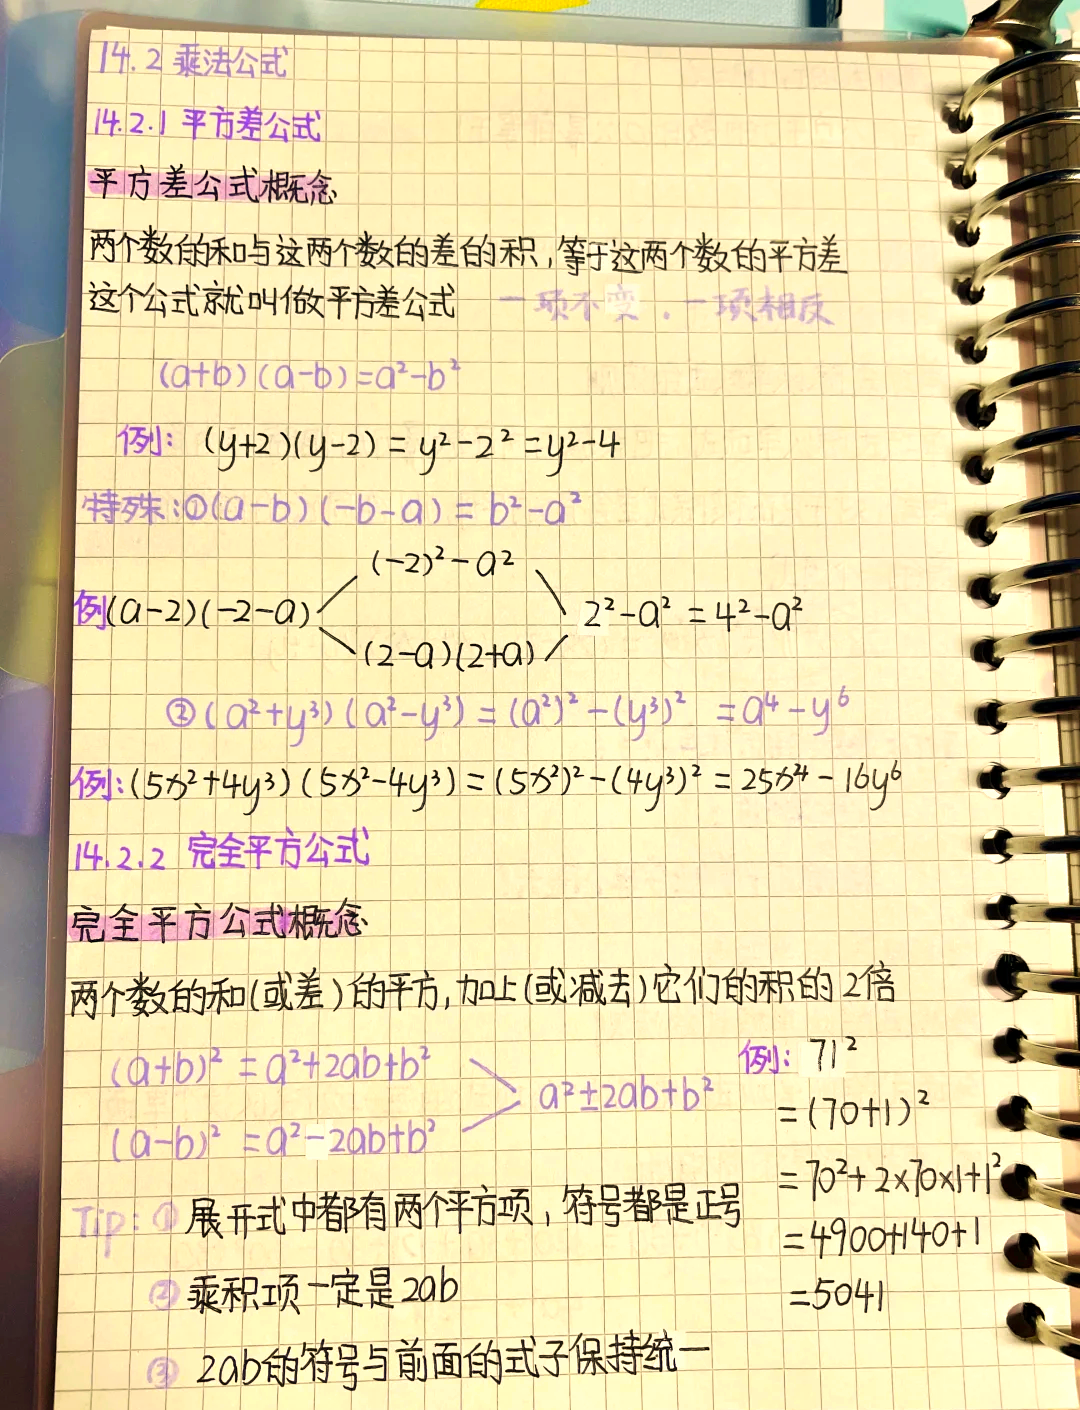 14.2 乘法公式
14.2.1 平方差公式
平方差公式概念
两个数的和与这两个数的差的积,等于这两个数的平方差
这个公式就叫做平方差公式 一项不变.一项相反
(a+b)(a-b)=a²-b²
例: (y+2)(y-2)=y²-2²=y²-4
特殊:①(a-b)(-b-a)=b²-a²
(-2)²-a²
例(a-2)(-2-a) 2²-a²=4²-a²
(2-a)(2+a)
②(a²+y³)(a²-y³)=(a²)²-(y³)² =a⁴-y⁶
例:(5x²+4y³)(5x²-4y³)=(5x²)²-(4y³)²=25x⁴-16y⁶
14.2.2 完全平方公式
完全平方公式概念
两个数的和(或差)的平方,加上(或减去)它们的积的2倍
(a+b)²=a²+2ab+b²
(a-b)²=a²-2ab+b²
a²±2ab+b²
例: 71²
=(70+1)²
=70²+2×70×1+1²
=4900+140+1
=5041
Tip:①展开式中都有两个平方项,符号都是正号
②乘积项一定是2ab
③2ab的符号与前面的式子保持统一